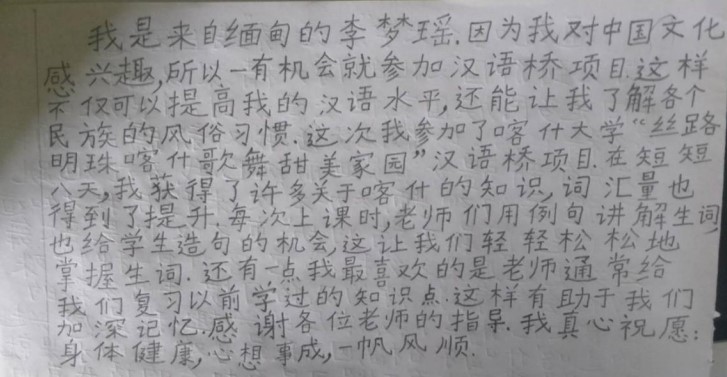 我是来自缅甸的李梦瑶.因为我对中国文化
感兴趣,所以一有机会就参加汉语桥项目.这样
不仅可以提高我的汉语水平,还能让我了解各个
民族的风俗习惯.这次我参加了喀什大学“丝路
明珠喀什歌舞甜美家园”汉语桥项目.在短短
八天,我获得了许多关于喀什的知识,词汇量也
得到了提升.每次上课时,老师们用例句讲解生词,
也给学生造句的机会,这让我们轻轻松松地
掌握生词.还有一点我最喜欢的是老师通常给
我们复习以前学过的知识点.这样有助于我们
加深记忆.感谢各位老师的指导.我真心祝愿:
身体健康,心想事成,一帆风顺.